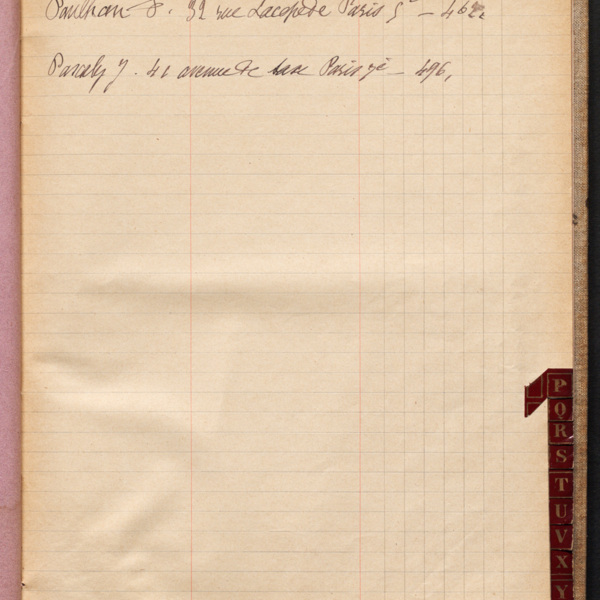 Paulhan J. 31 rue Lacépède Paris 5e — 462.
Pascaly J. 41 avenue de Saxe Paris 7e — 496.
P
Q
R
S
T
U
V
X
Y